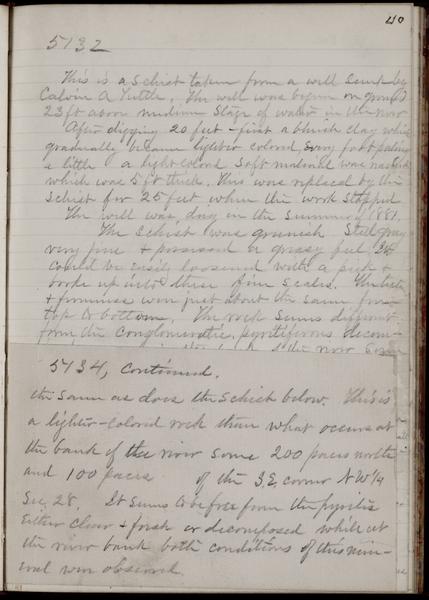 40
5132
This is a Schist taken from a well sunk by
Calvin A Tuttle. The well was begun on ground
23 ft above medium Stage of water in the river
After digging 20 feet - first a bluish clay which
gradually became lighter colored, every foot
a little a light colored soft material was reached
which was 5 ft thick. This was replaced by the
Schist for 25 feet when the work stopped
The well was dug in the Summer 1881.
The Schist was greenish Steel gray
very fine & possessed a greasy feel. It
could be easily loosened with a pick &
broke up into fine scales. The
& firmness were just about the same from
top to bottom. The rock seems different
from the conglomeratic, pyritiferous decom-
the river
5134, Continued.
the same as does the Schist below. This is
a lighter-colored rock than what occurs at
the bank of the river some 200 paces north
and 100 paces of the S.E. corner N.W.¼
Sec. 28. It seems to be free from the pyrites
either clear & fresh or decomposed while at
the river bank both conditions of this min-
eral were observed.